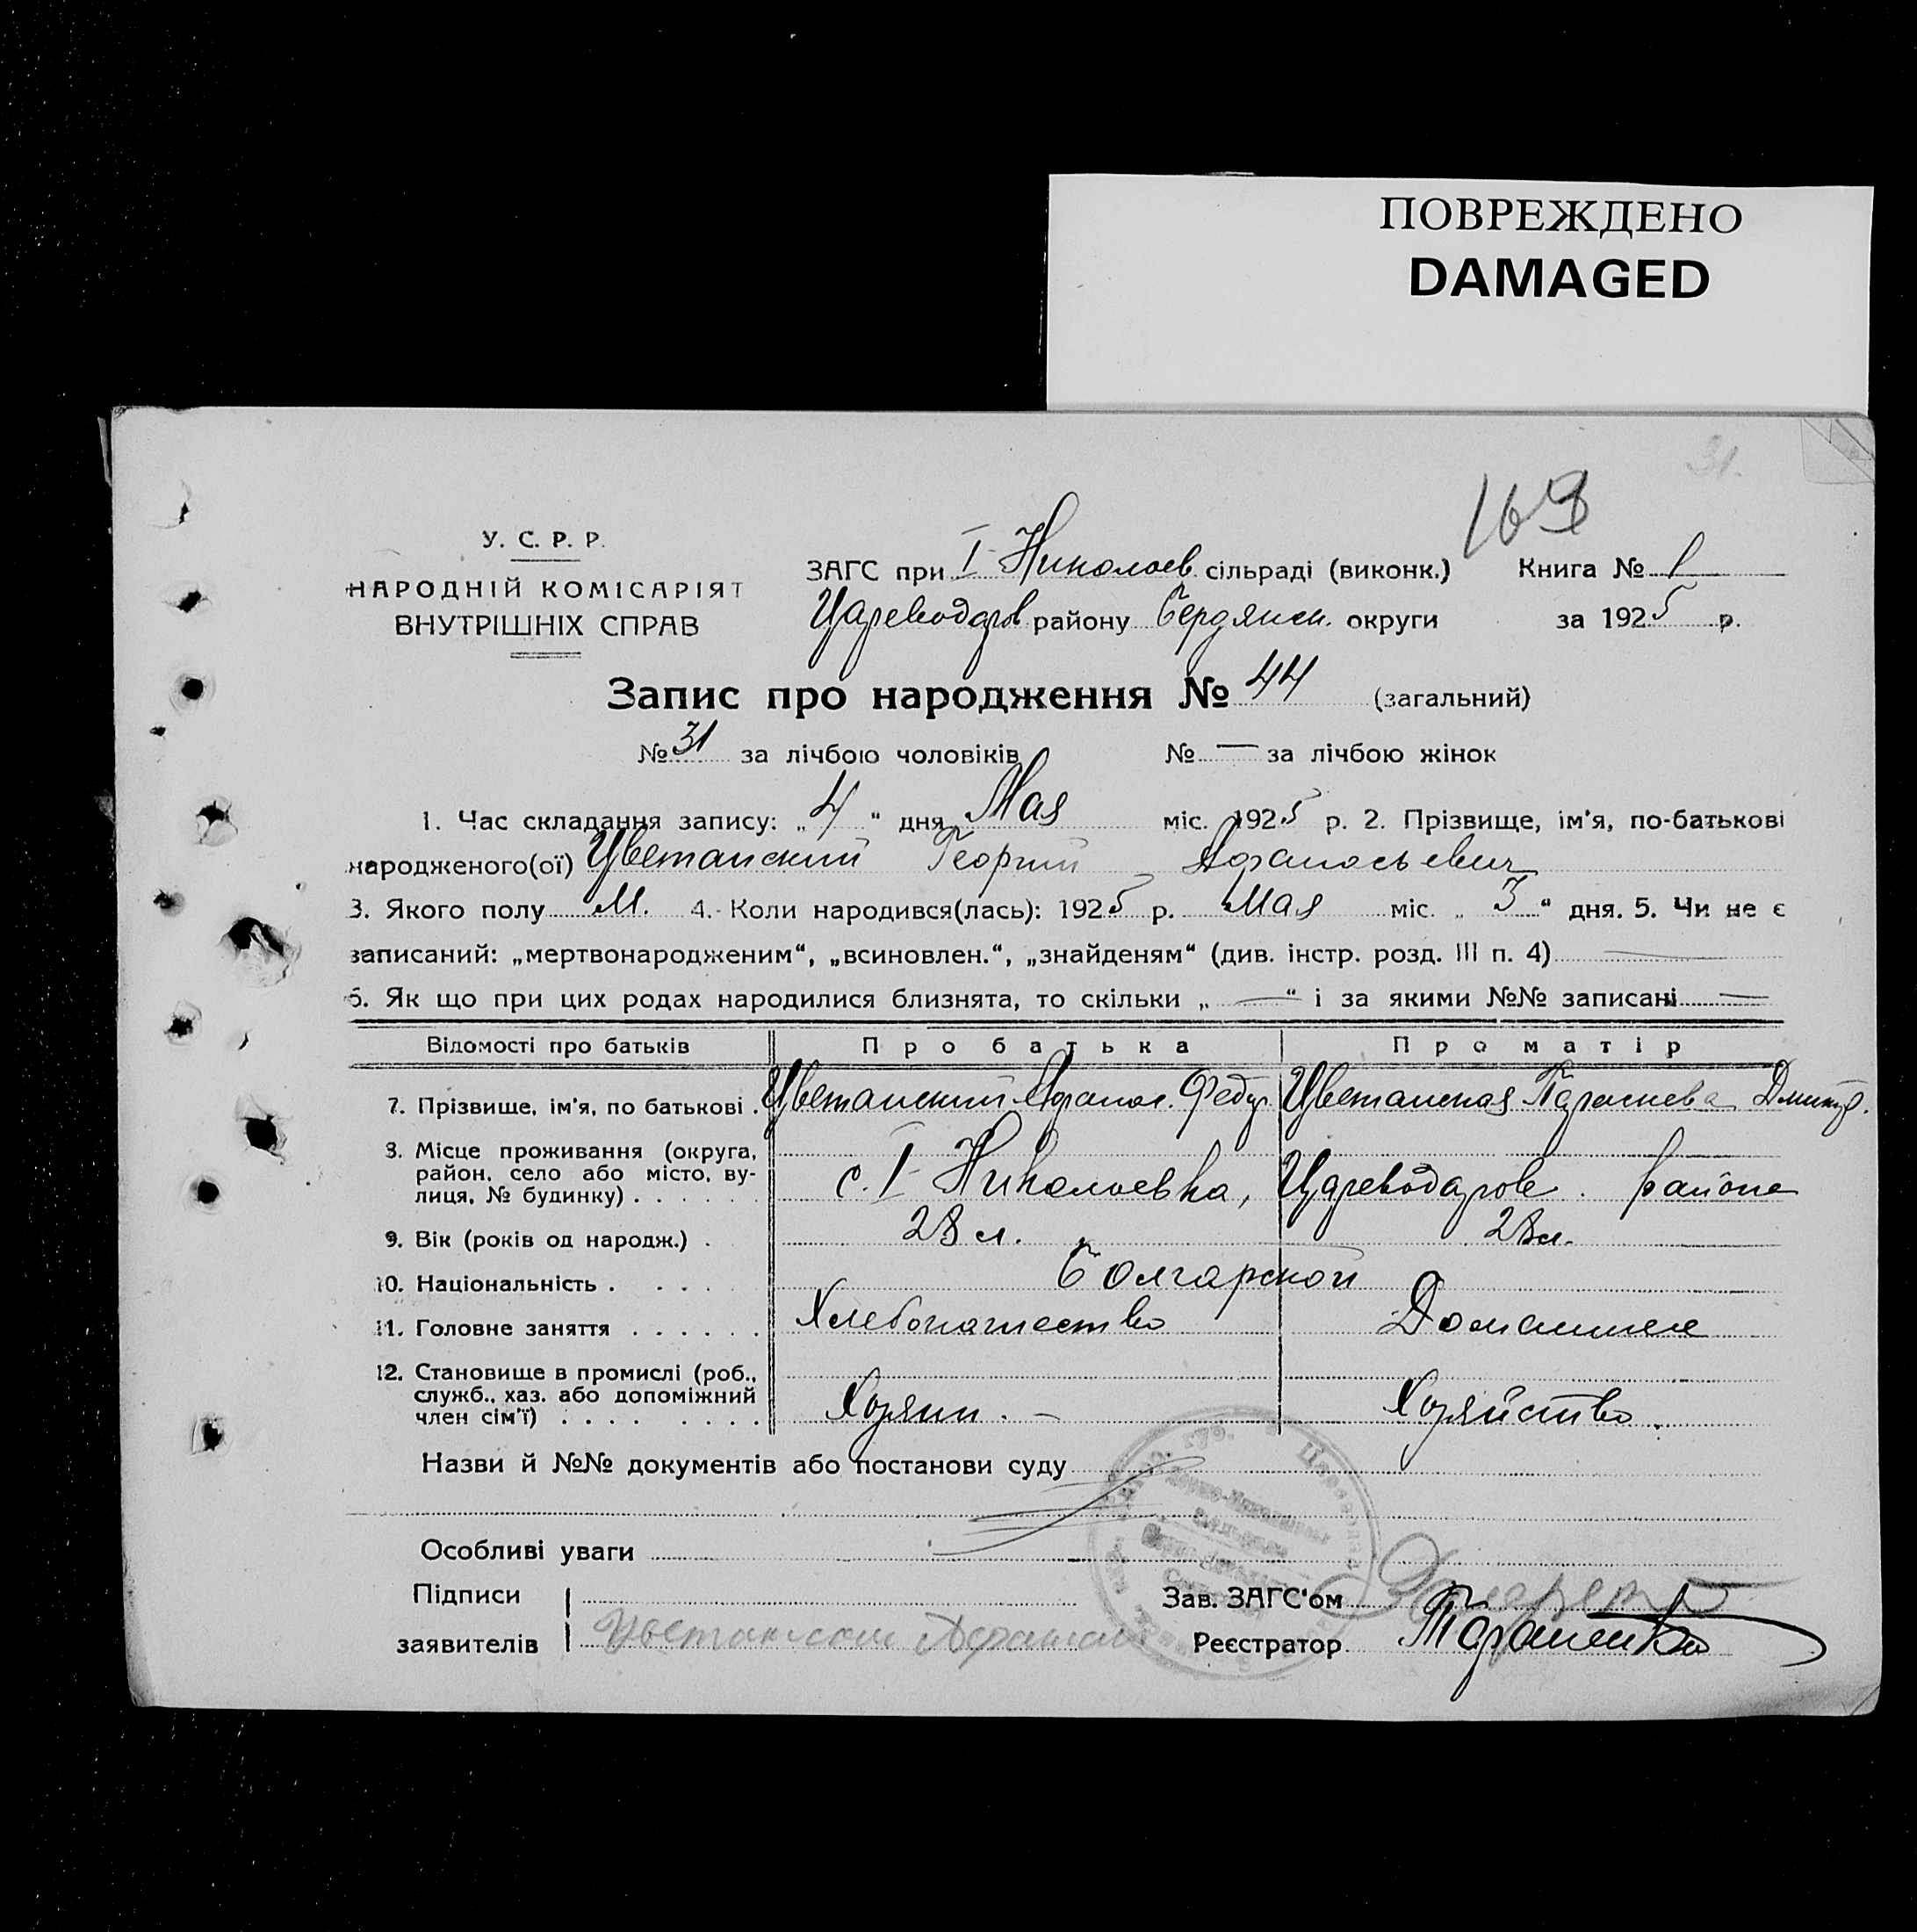 ПОВРЕЖДЕНО
DAMAGED
31.
169
У. С. Р. Р.
НАРОДНІЙ КОМІСАРІЯТ
ВНУТРІШНІХ СПРАВ
ЗАГС при I Николаев сільраді (виконк.) Книга № 1
Цареводаров району Бердянск. округи за 1925 р.
Запис про народження № 44 (загальний)
№ 31 за лічбою чоловіків № — за лічбою жінок
1. Час складання запису: „4“ дня Мая міс. 1925 р. 2. Прізвище, ім'я, по-батькові
народженого(ої) Цветанский Георгий Афанасьевич
3. Якого полу М. 4. Коли народився(лась): 1925 р. Мая міс. „3“ дня. 5. Чи не є
записаний: „мертвонародженим“, „всиновлен.“, „знайденям“ (див. інстр. розд. III п. 4) —
6. Як що при цих родах народилися близнята, то скільки „ — “ і за якими №№ записані —
Відомості про батьків Про батька Про матір
7. Прізвище, ім'я, по батькові . Цветанский Афанас. Федор. Цветанская Параскева Дмитр.
8. Місце проживання (округа,
район, село або місто, ву-
лиця, № будинку) . . . . . . с. I Николаевка, Цареводаров. района
9. Вік (років од народж.) . 28 л. 28 л.
10. Національність . . . . . Болгарской
11. Головне заняття . . . . . . Хлебопашество Домашнее
12. Становище в промислі (роб.,
служб., хаз. або допоміжний
член сім'ї) . . . . . . . . Хозяин. — Хозяйство.
Назви й №№ документів або постанови суду
Особливі уваги
Підписи
заявителів Цветански Афанас
Зав. ЗАГС'ом
Реєстратор Тараненко